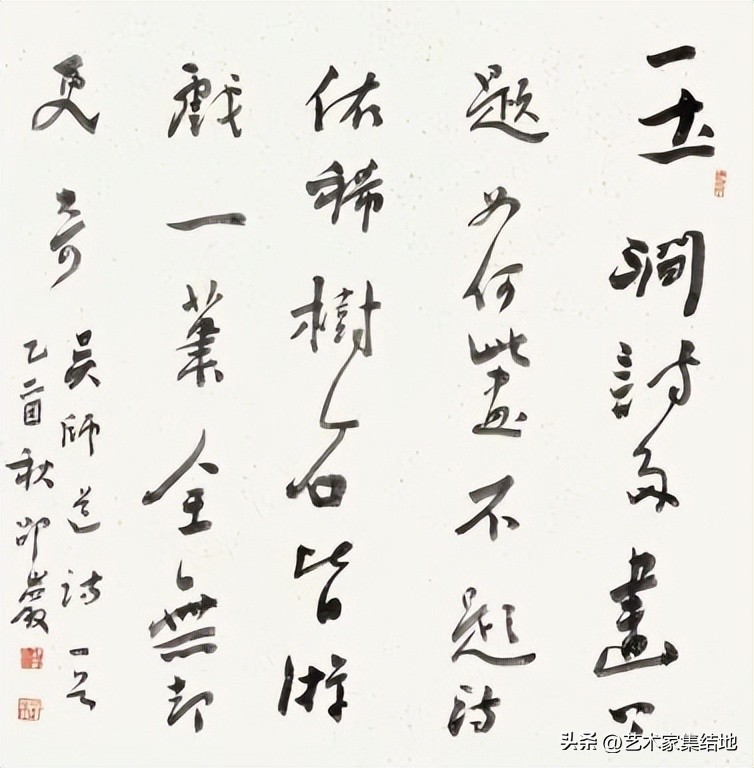 玉澗詩多畫可
題如何此畫不題詩
依稀樹石皆游
戲一葉全無却
更奇
吳師道詩一首
乙酉秋邵巖
头条 @艺术家集结地